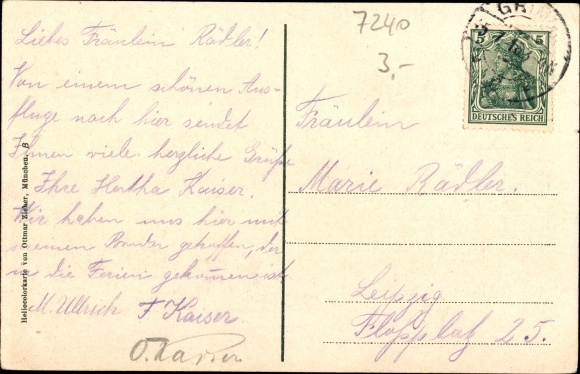 Liebes Fräulein Rädler!
Von einem schönen Aus-
fluge nach hier sendet
Ihnen viele herzliche Grüße
Ihre Hertha Kaiser.
Wir haben uns hier mit
meinem Bruder getroffen, der
in die Ferien gekommen ist
M. Ullrich F Kaiser.
O. Kaiser
7240
3,-
5 5
DEUTSCHES REICH
Fräulein
Marie Rädler.
Leipzig
25.
Heliocolorkarte von Ottmar Zieher, München. B